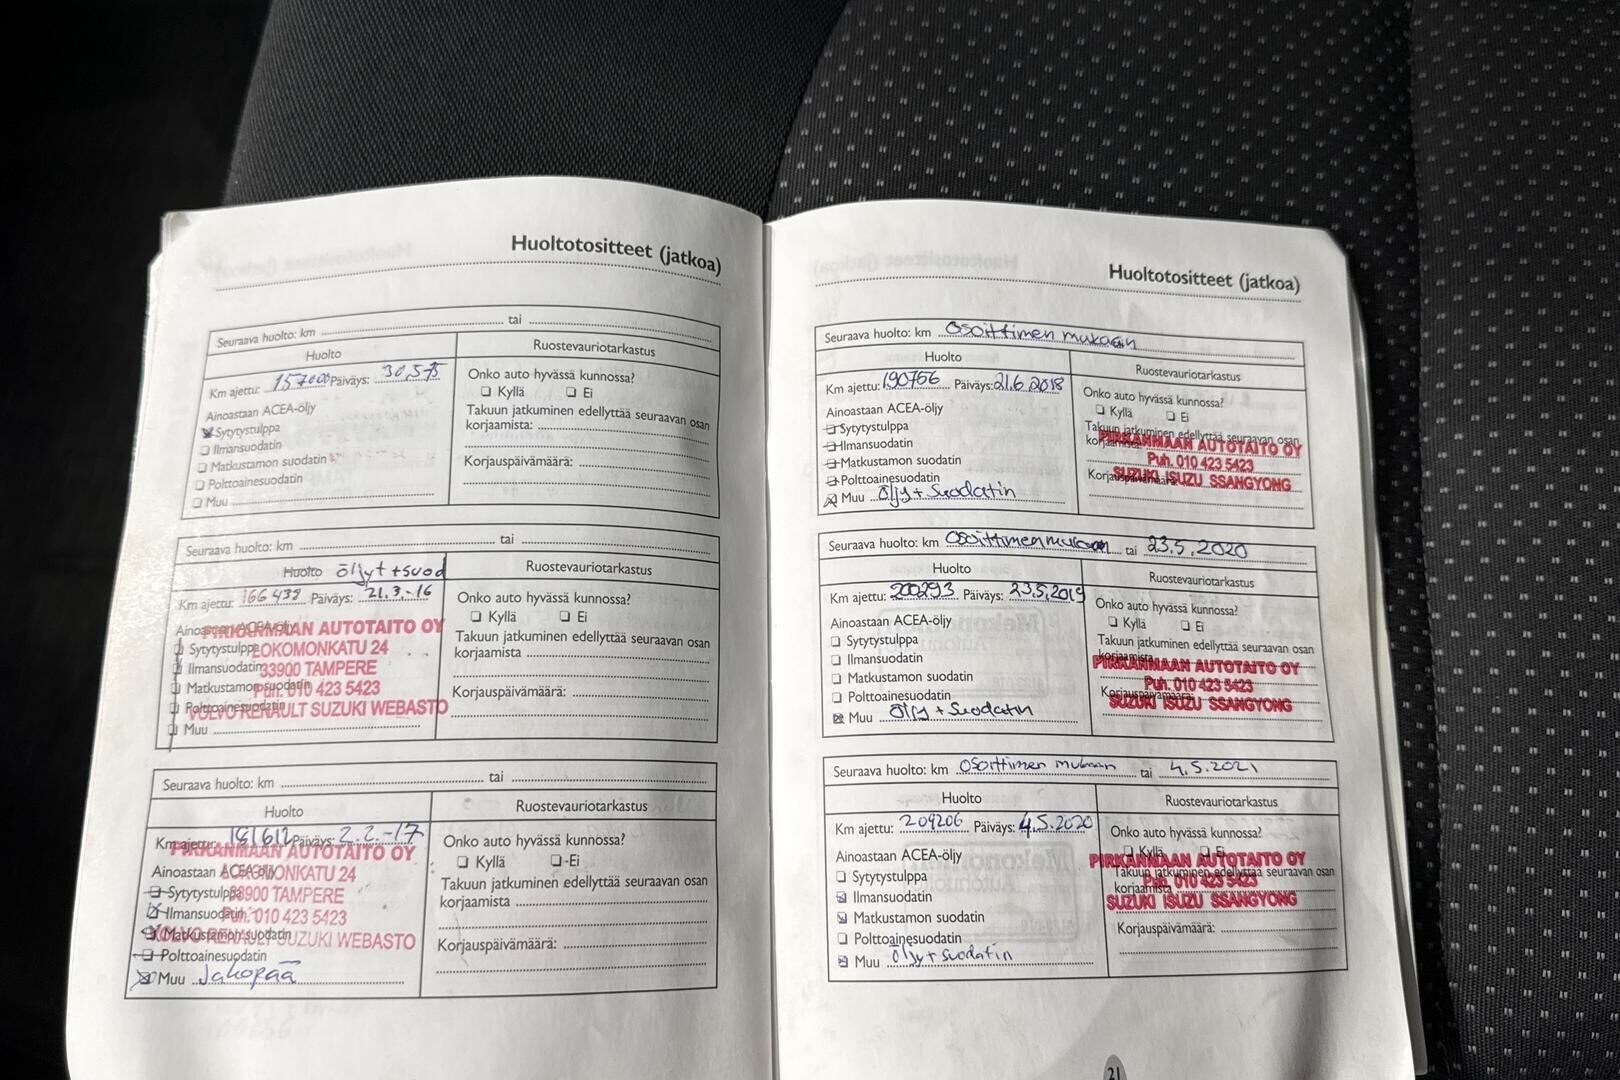 Huoltotositteet (jatkoa)
Seuraava huolto: km tai
Huolto
Ruostevauriotarkastus
Km ajettu: 157000 Päiväys: 30.5-15
Ainoastaan ACEA-öljy
Sytytystulppa
Ilmansuodatin
Matkustamon suodatin
Polttoainesuodatin
Muu
Onko auto hyvässä kunnossa?
Kyllä Ei
Takuun jatkuminen edellyttää seuraavan osan
korjaamista:
Korjauspäivämäärä:
Seuraava huolto: km tai
Huolto öljyt + suod
Ruostevauriotarkastus
Km ajettu: 166438 Päiväys: 21.3.-16
Ainoastaan ACEA-öljy
Sytytystulppa
Ilmansuodatin
Matkustamon suodatin
Polttoainesuodatin
Muu
PIRKANMAAN AUTOTAITO OY
LOKOMONKATU 24
33900 TAMPERE
Puh. 010 423 5423
VOLVO RENAULT SUZUKI WEBASTO
Onko auto hyvässä kunnossa?
Kyllä Ei
Takuun jatkuminen edellyttää seuraavan osan
korjaamista
Korjauspäivämäärä:
Seuraava huolto: km tai
Huolto
Ruostevauriotarkastus
Km ajettu: 181612 Päiväys: 2.2.-17
Ainoastaan ACEA-öljy
Sytytystulppa
Ilmansuodatin
Matkustamon suodatin
Polttoainesuodatin
Muu Jakopää
PIRKANMAAN AUTOTAITO OY
LOKOMONKATU 24
33900 TAMPERE
Puh. 010 423 5423
VOLVO RENAULT SUZUKI WEBASTO
Onko auto hyvässä kunnossa?
Kyllä Ei
Takuun jatkuminen edellyttää seuraavan osan
korjaamista
Korjauspäivämäärä:
Huoltotositteet (jatkoa)
Seuraava huolto: km Osoittimen mukaan
Huolto
Ruostevauriotarkastus
Km ajettu: 190756 Päiväys: 21.6.2018
Ainoastaan ACEA-öljy
Sytytystulppa
Ilmansuodatin
Matkustamon suodatin
Polttoainesuodatin
Muu Öljy + Suodatin
Onko auto hyvässä kunnossa?
Kyllä Ei
Takuun jatkuminen edellyttää seuraavan osan
korjaamista
Korjauspäivämäärä:
PIRKANMAAN AUTOTAITO OY
Puh. 010 423 5423
SUZUKI ISUZU SSANGYONG
Seuraava huolto: km Osoittimen mukaan tai 23.5.2020
Huolto
Ruostevauriotarkastus
Km ajettu: 200293 Päiväys: 23.5.2019
Ainoastaan ACEA-öljy
Sytytystulppa
Ilmansuodatin
Matkustamon suodatin
Polttoainesuodatin
Muu Öljy + Suodatin
Onko auto hyvässä kunnossa?
Kyllä Ei
Takuun jatkuminen edellyttää seuraavan osan
korjaamista
Korjauspäivämäärä:
PIRKANMAAN AUTOTAITO OY
Puh. 010 423 5423
SUZUKI ISUZU SSANGYONG
Seuraava huolto: km Osoittimen mukaan tai 4.5.2021
Huolto
Ruostevauriotarkastus
Km ajettu: 209206 Päiväys: 4.5.2020
Ainoastaan ACEA-öljy
Sytytystulppa
Ilmansuodatin
Matkustamon suodatin
Polttoainesuodatin
Muu Öljy + suodatin
Onko auto hyvässä kunnossa?
Kyllä Ei
Takuun jatkuminen edellyttää seuraavan osan
korjaamista
Korjauspäivämäärä:
PIRKANMAAN AUTOTAITO OY
Puh. 010 423 5423
SUZUKI ISUZU SSANGYONG
21